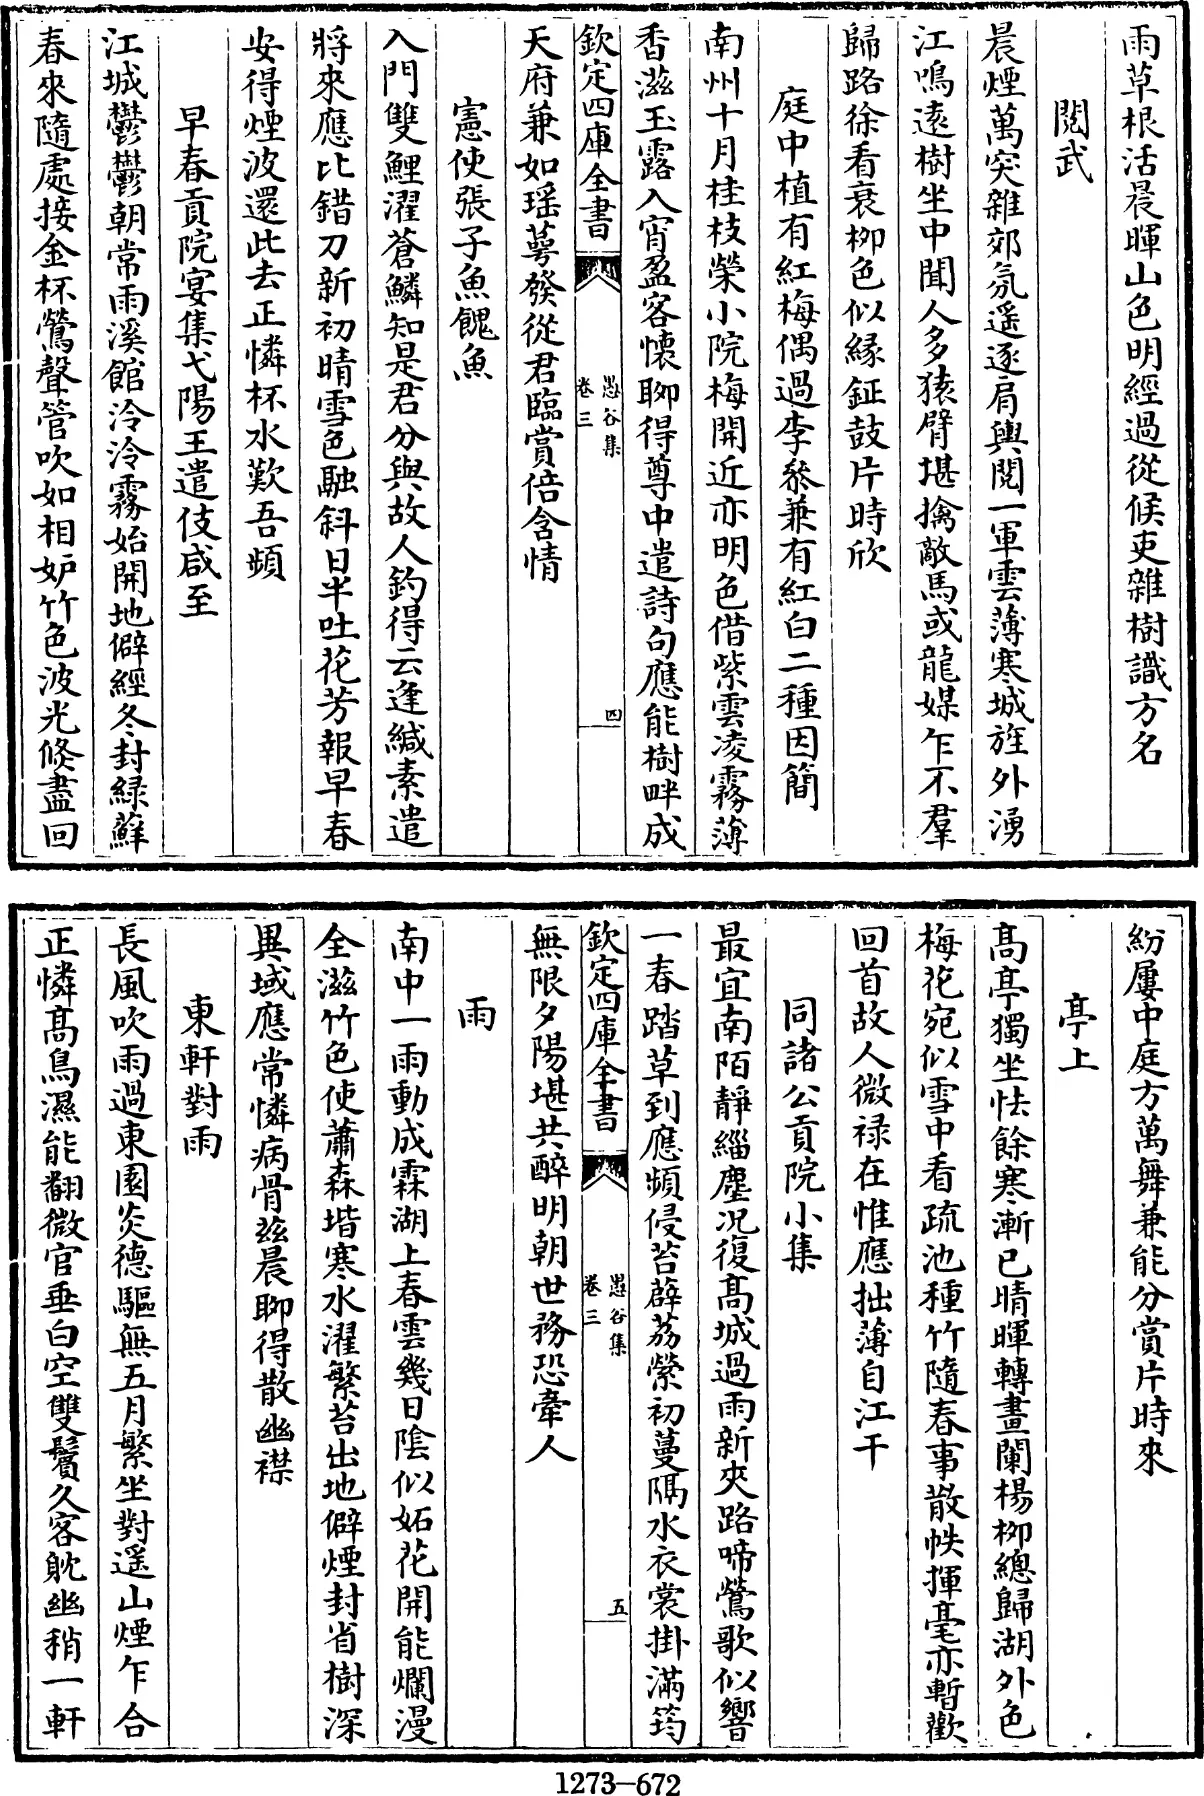 雨草根活晨暉山色明經過從候吏雜樹識方名
閱武
晨煙萬突雜郊氛遥逐肩輿閱一軍雲薄寒城旌外湧
江鳴遠樹坐中聞人多猿臂堪擒敵馬或龍媒乍不羣
歸路徐看衰柳色似緣鉦鼓片時欣
庭中植有紅梅偶過李叅兼有紅白二種因簡
南州十月桂枝榮小院梅開近亦明色借紫雲凌霧薄
香滋玉露入宵盈客懷聊得尊中遣詩句應能樹畔成
欽定四庫全書
愚谷集
卷三
四
天府兼如瑶萼發從君臨賞倍含情
憲使張子魚餽魚
入門雙鯉濯蒼鱗知是君分與故人釣得云逢緘素遣
將來應比錯刀新初晴雪色融斜日半吐花芳報早春
安得煙波還此去正憐杯水歎吾頻
早春貢院宴集弋陽王遣伎咸至
江城鬱鬱朝常雨溪館泠泠霧始開地僻經冬封綠蘚
春來隨處接金杯鶯聲管吹如相妒竹色波光倐盡回
紛屢中庭方萬舞兼能分賞片時來
亭上
高亭獨坐怯餘寒漸已晴暉轉畫闌楊柳總歸湖外色
梅花宛似雪中看疏池種竹隨春事散帙揮毫亦暫歡
回首故人微祿在惟應拙薄自江干
同諸公貢院小集
最宜南陌靜緇塵况復高城過雨新夾路啼鶯歌似響
一春踏草到應頻侵苔薜荔縈初蔓隔水衣裳掛滿筠
欽定四庫全書
愚谷集
卷三
五
無限夕陽堪共醉明朝世務恐牽人
雨
南中一雨動成霖湖上春雲幾日陰似妬花開能爛漫
全滋竹色使蕭森堦寒水濯繁苔出地僻煙封省樹深
異域應常憐病骨茲晨聊得散幽襟
東軒對雨
長風吹雨過東園炎德驅無五月繁坐對遥山煙乍合
正憐高鳥濕能翻微官垂白空雙鬢久客躭幽稍一軒
1273-672